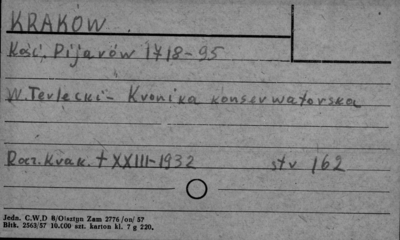 KRAKÓW
Kość. Pijarów 1718-95
W. Terlecki - Kronika konserwatorska
Rocz. Krak. t XXIII-1932 str 162
Jedn. C.W.D 0/Olsztyn Zam 2776/on/57
Bltk. 2563/57 10.000 szt. karton kl. 7 g 220.